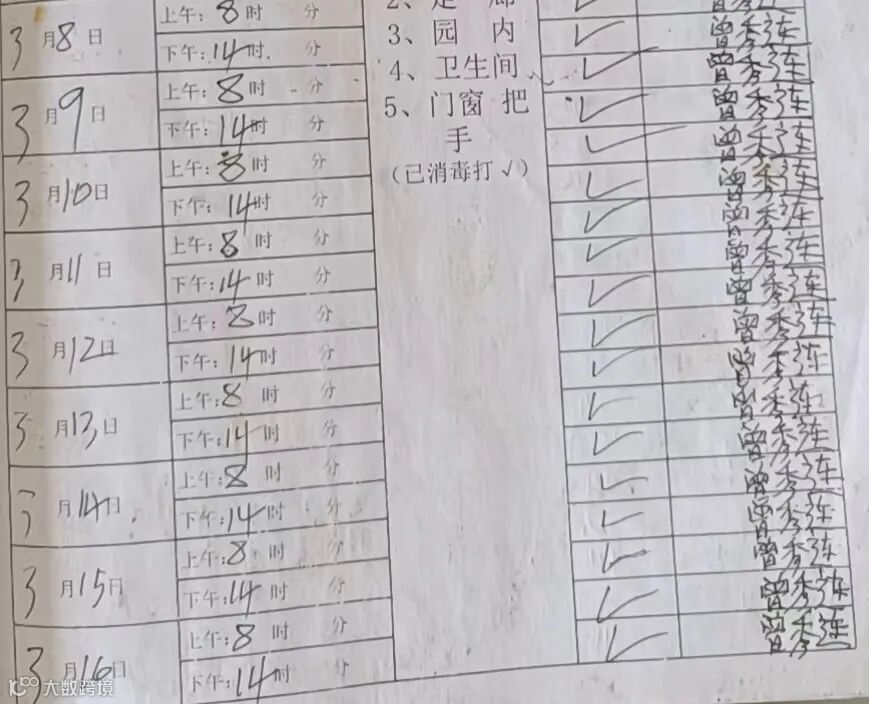 3月8日 上午:8时 分 2、走廊 ✓ 曾秀连
下午:14时 分 3、园内 ✓ 曾秀连
3月9日 上午:8时 分 4、卫生间 ✓ 曾秀连
下午:14时 分 5、门窗把 ✓ 曾秀连
3月10日 上午:8时 分 手 ✓ 曾秀连
下午:14时 分 (已消毒打√) ✓ 曾秀连
3月11日 上午:8时 分 ✓ 曾秀连
下午:14时 分 ✓ 曾秀连
3月12日 上午:8时 分 ✓ 曾秀连
下午:14时 分 ✓ 曾秀连
3月13日 上午:8时 分 ✓ 曾秀连
下午:14时 分 ✓ 曾秀连
3月14日 上午:8时 分 ✓ 曾秀连
下午:14时 分 ✓ 曾秀连
3月15日 上午:8时 分 ✓ 曾秀连
下午:14时 分 ✓ 曾秀连
3月16日 上午:8时 分 ✓ 曾秀连
下午:14时 分 ✓ 曾秀连
大数跨境